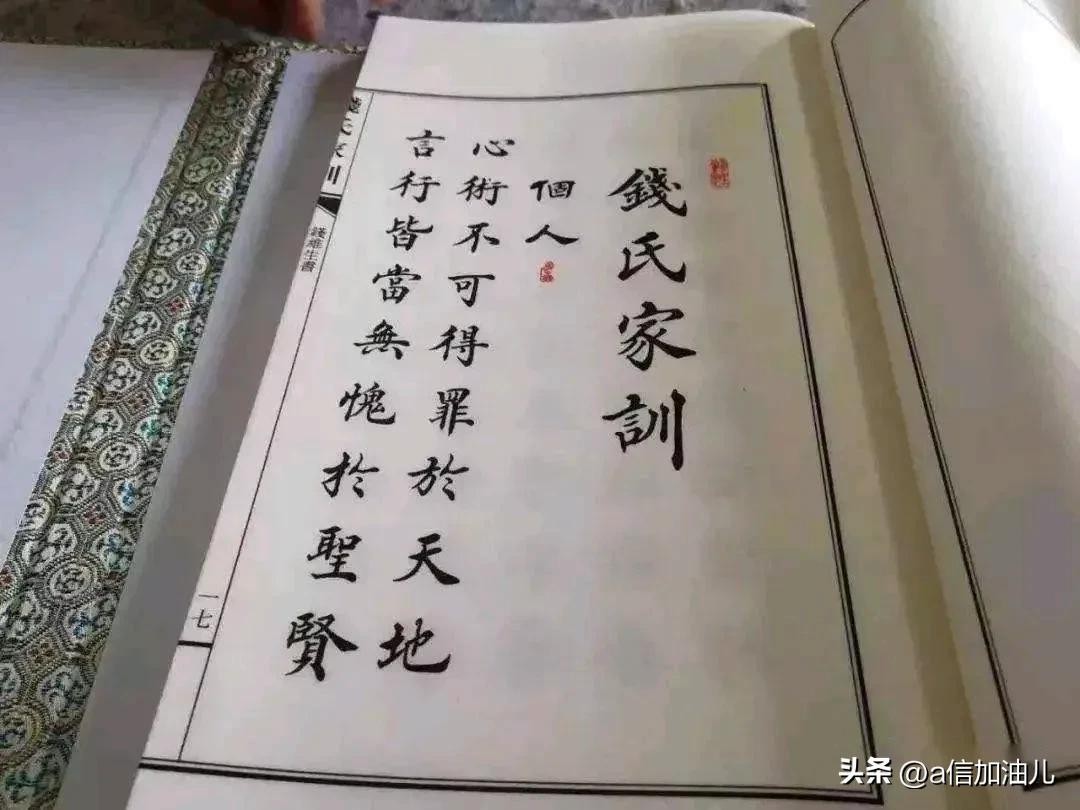 錢氏家訓
個人
心術不可得罪於天地
言行皆當無愧於聖賢
錢氏家訓
錢維生書
一七
头条 @a信加油儿